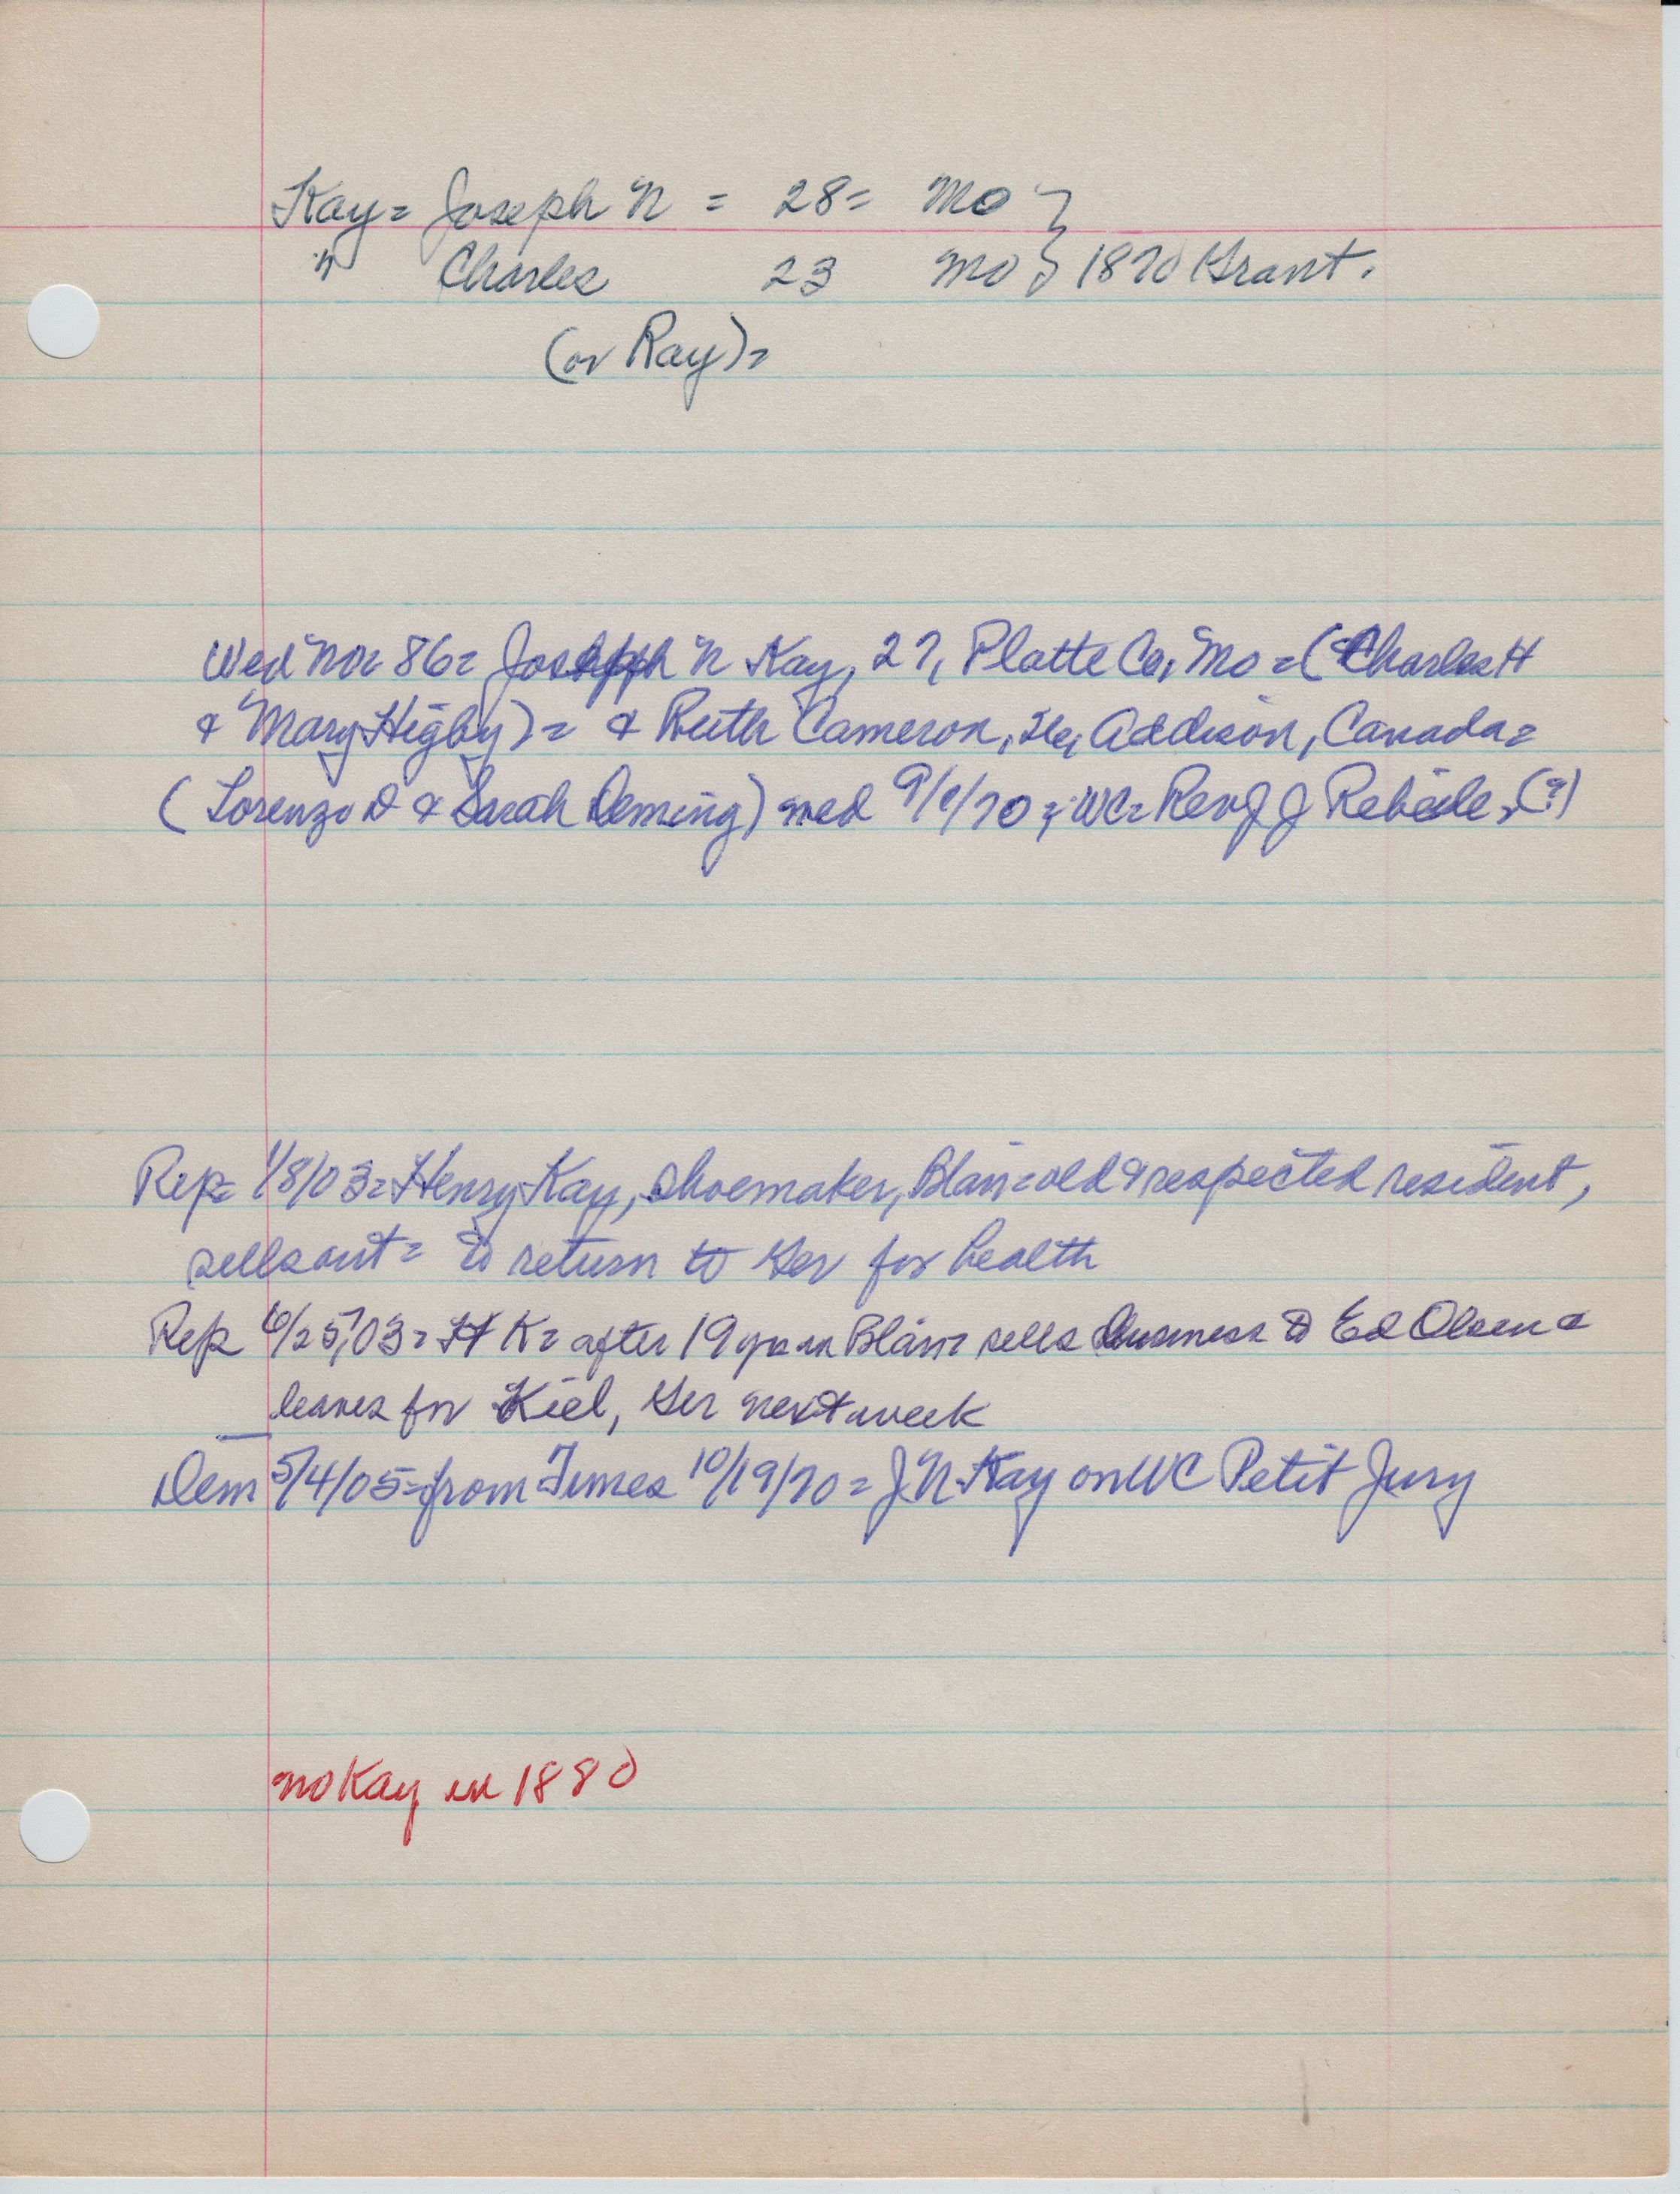 Kay = Joseph N = 28 = Mo }
" Charles 23 Mo } 1870 Grant.
(or Ray) =
Wed No 86 = Joseph N Kay, 27, Platte Co, Mo = (Charles H
& Mary Higby) = & Ruth Cameron, Addison, Canada =
(Lorenzo D & Sarah Deming) wed 9/1/70 = WC = Rev J J (?)
Rep = 1/8/03 = Henry Kay, shoemaker, Blair = old & respected resident,
sells out = to return to Ger for health
Rep 6/25/03 = H K = after 19 yrs in Blair = sells business to Ed Olsen &
leaves for Kiel, Ger next week
Dem 5/4/05 = from Times 10/19/70 = J N Kay on WC Petit Jury
no Kay in 1880